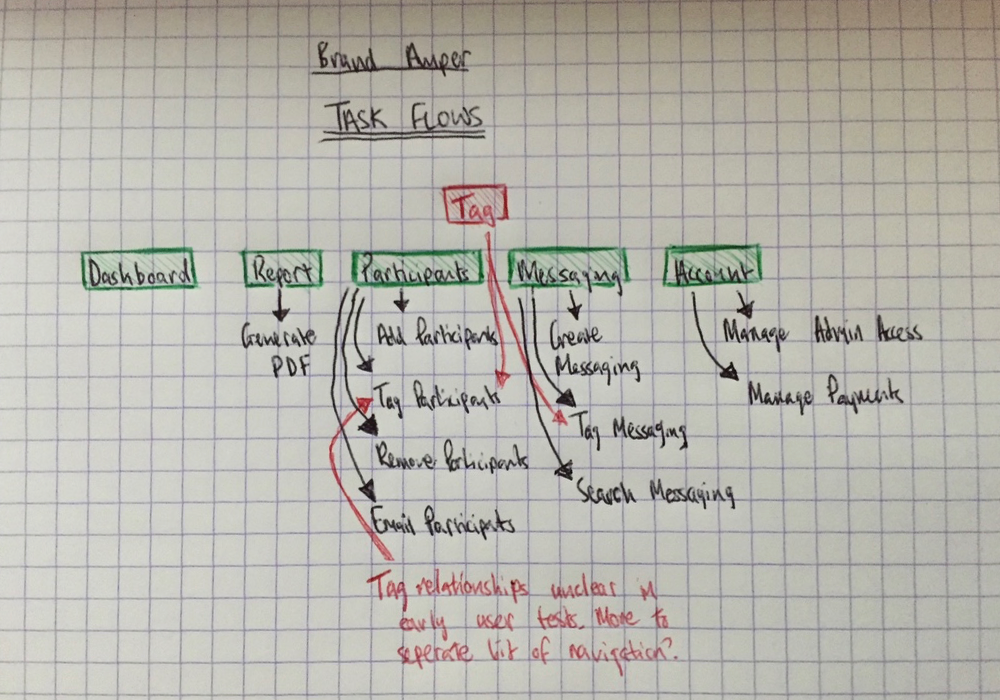 Brand Amper
TASK FLOWS
Tag
Dashboard
Report
Participants
Messaging
Account
Generate
PDF
Add Participants
Tag Participants
Remove Participants
Email Participats
Create
Messaging
Tag Messaging
Search Messaging
Manage Admin Access
Manage Payments
Tag relationships unclear in
early user tests. More to
seperate bit of navigation?